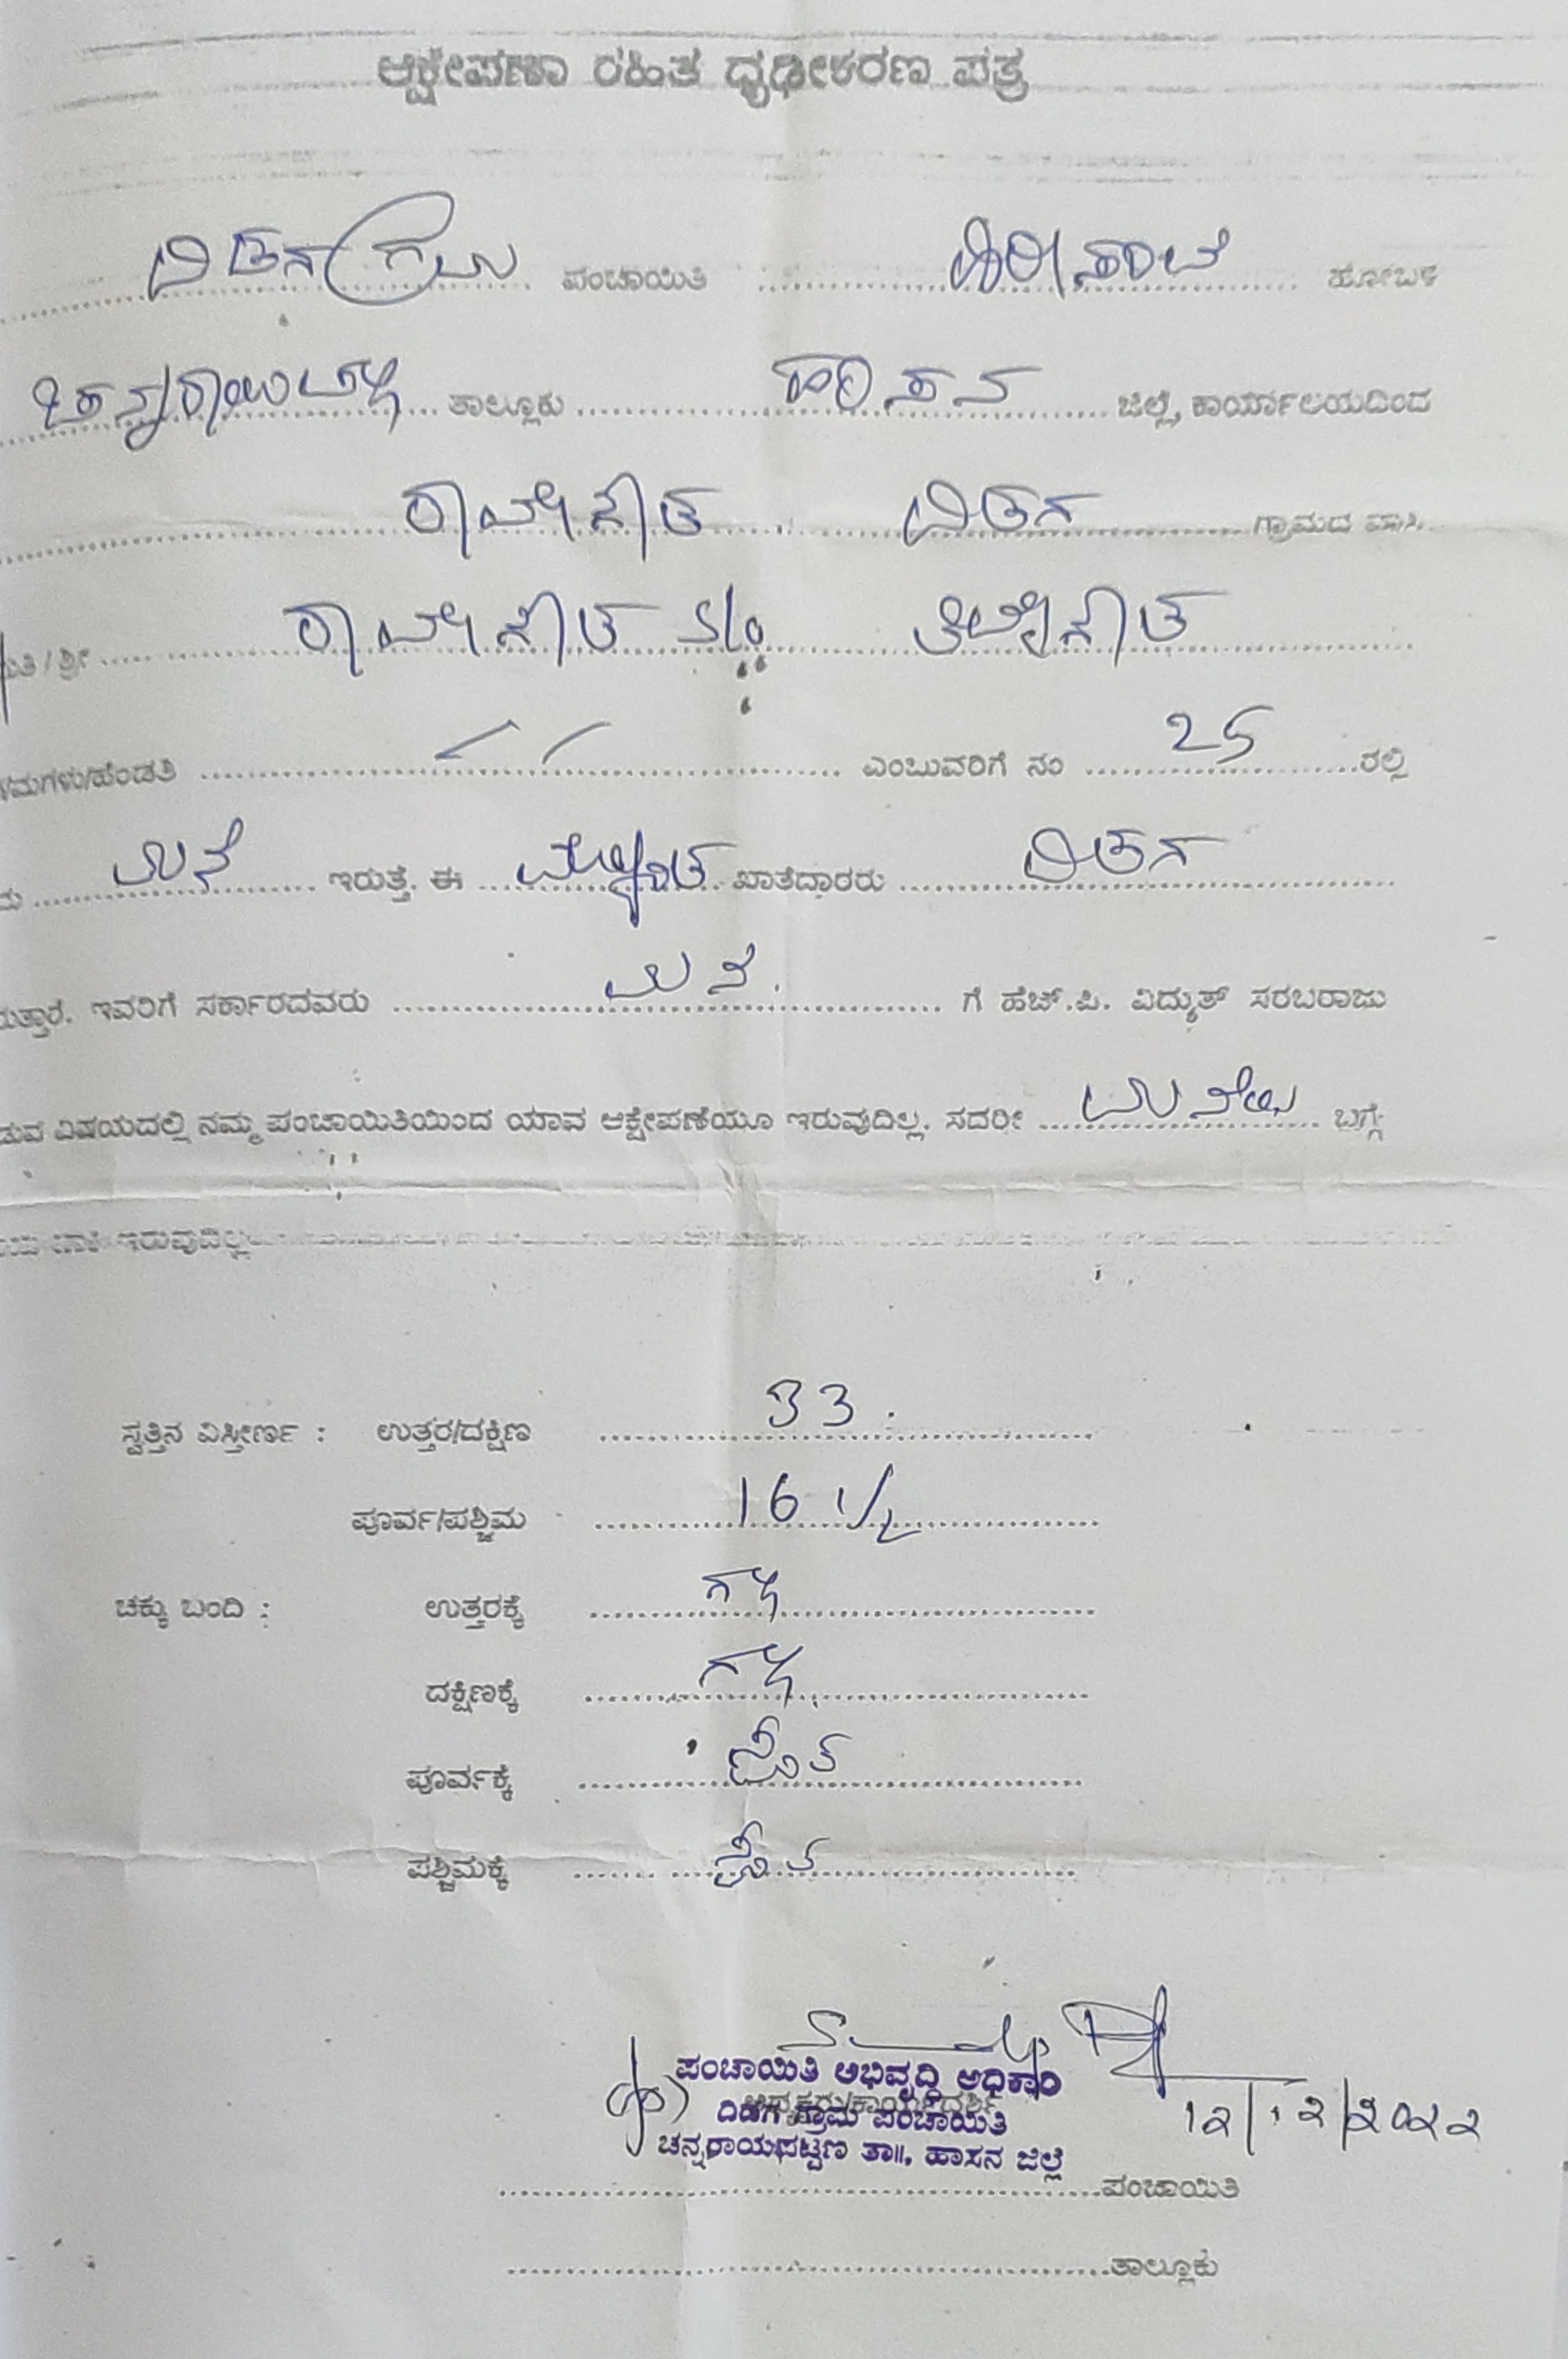 ಆಕ್ಷೇಪಣಾ ರಹಿತ ಧೃಢೀಕರಣ ಪತ್ರ
ದಿಡಗ ಗ್ರಾಮ ಪಂಚಾಯಿತಿ ಹಿರೀಸಾವೆ ಹೋಬಳಿ
ಚನ್ನರಾಯಪಟ್ಟಣ ತಾಲ್ಲೂಕು ಹಾಸನ ಜಿಲ್ಲೆ, ಕಾರ್ಯಾಲಯದಿಂದ
ರಾಮೇಗೌಡ ದಿಡಗ ಗ್ರಾಮದ ವಾಸಿ
ಮತಿ / ಶ್ರೀ ರಾಮೇಗೌಡ S/o ತಿಮ್ಮೇಗೌಡ
ಮಗಳು/ಹೆಂಡತಿ ಎಂಬುವರಿಗೆ ನಂ 25 ರಲ್ಲಿ
ಮನೆ ಇರುತ್ತೆ. ಈ ಖಾತೆದಾರರು ದಿಡಗ
ರುತ್ತಾರೆ. ಇವರಿಗೆ ಸರ್ಕಾರದವರು ಮನೆ. ಗೆ ಹೆಚ್.ಪಿ. ವಿದ್ಯುತ್ ಸರಬರಾಜು
ಡುವ ವಿಷಯದಲ್ಲಿ ನಮ್ಮ ಪಂಚಾಯಿತಿಯಿಂದ ಯಾವ ಆಕ್ಷೇಪಣೆಯೂ ಇರುವುದಿಲ್ಲ. ಸದರೀ ಮನೆಯ ಬಗ್ಗೆ
ಇರುವುದಿಲ್ಲ
ಸ್ವತ್ತಿನ ವಿಸ್ತೀರ್ಣ : ಉತ್ತರ/ದಕ್ಷಿಣ 33
ಪೂರ್ವ/ಪಶ್ಚಿಮ 16 1/2
ಚಕ್ಕು ಬಂದಿ : ಉತ್ತರಕ್ಕೆ
ದಕ್ಷಿಣಕ್ಕೆ
ಪೂರ್ವಕ್ಕೆ
ಪಶ್ಚಿಮಕ್ಕೆ
ಪಂಚಾಯಿತಿ ಅಭಿವೃದ್ಧಿ ಅಧಿಕಾರಿ
ಅಧ್ಯಕ್ಷರು/ಕಾರ್ಯದರ್ಶಿ
ದಿಡಗ ಗ್ರಾಮ ಪಂಚಾಯಿತಿ
12/12/2022
ಚನ್ನರಾಯಪಟ್ಟಣ ತಾ||, ಹಾಸನ ಜಿಲ್ಲೆ
ಪಂಚಾಯಿತಿ
ತಾಲ್ಲೂಕು